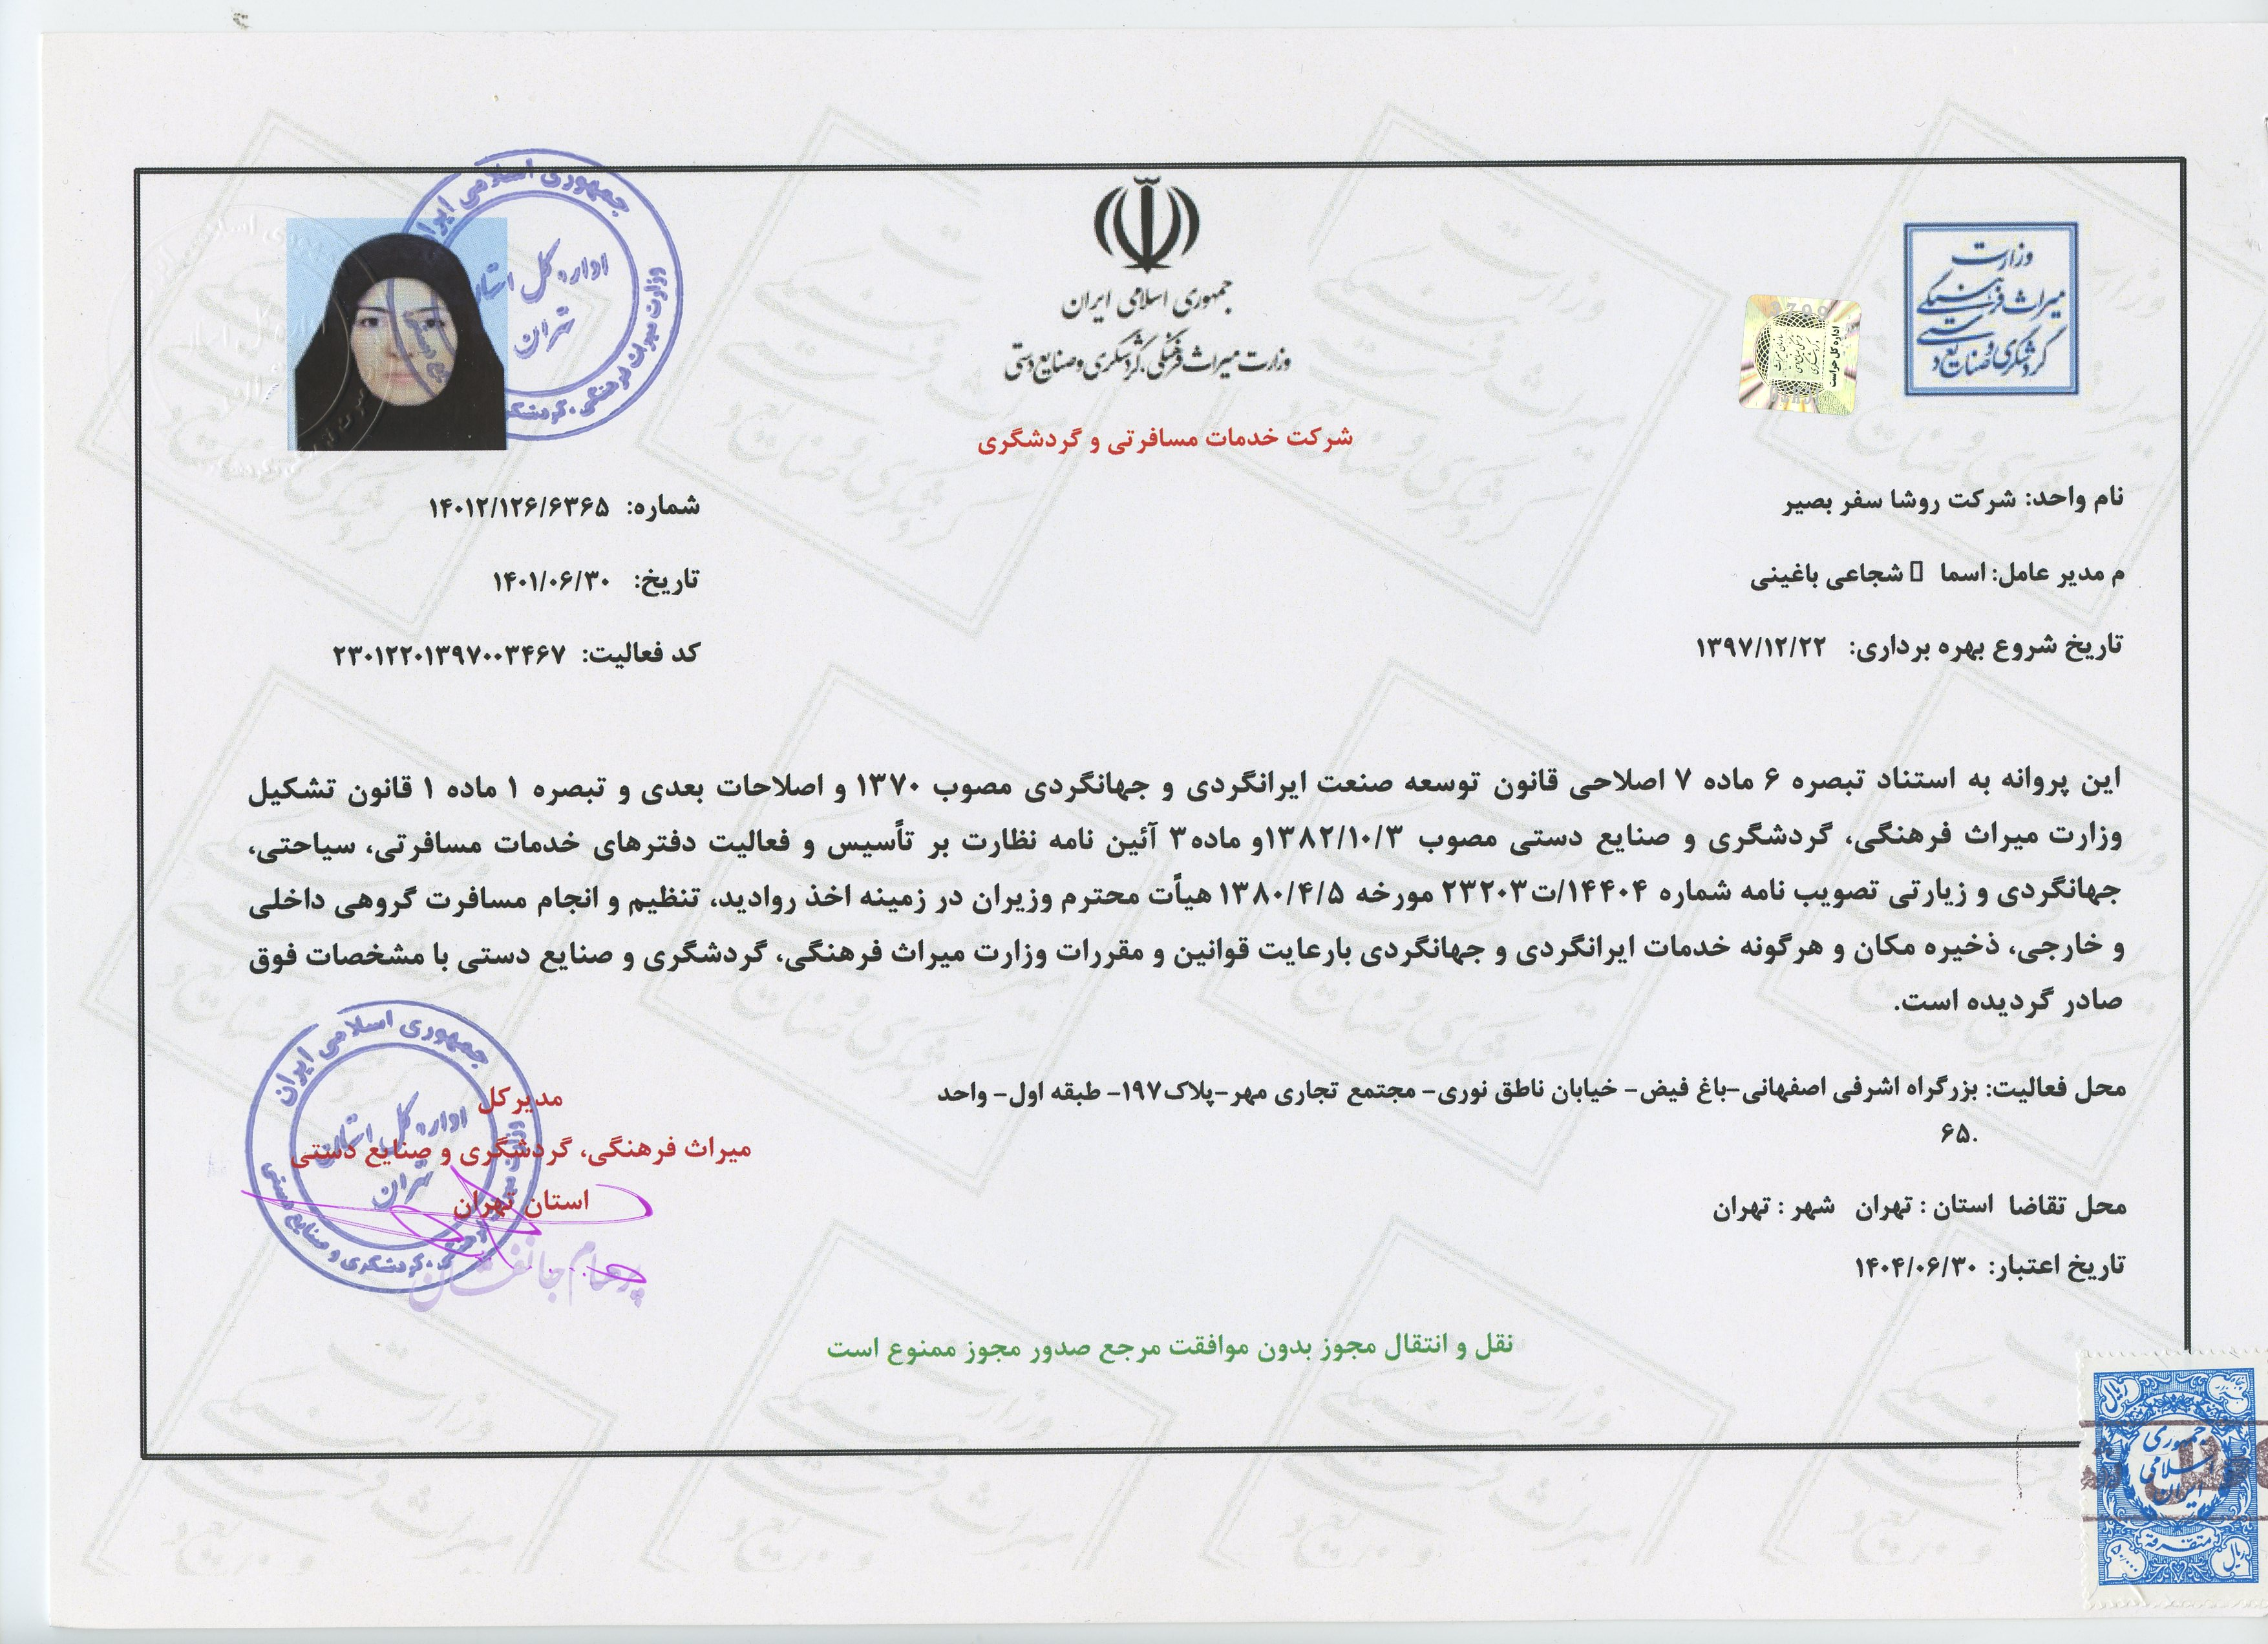 جمهوری اسلامی ایران
وزارت میراث فرهنگی، گردشگری و صنایع دستی
وزارت
میراث فرهنگی
گردشگری و صنایع دستی
اداره کل حراست
جمهوری اسلامی ایران
وزارت میراث فرهنگی، گردشگری
اداره کل استان
تهران
شرکت خدمات مسافرتی و گردشگری
نام واحد: شرکت روشا سفر بصیر
م مدیر عامل: اسما شجاعی باغینی
تاریخ شروع بهره برداری: ۱۳۹۷/۱۲/۲۲
شماره: ۱۴۰۱۲/۱۲۶/۶۳۶۵
تاریخ: ۱۴۰۱/۰۶/۳۰
کد فعالیت: ۲۳۰۱۲۲۰۱۳۹۷۰۰۳۴۶۷
این پروانه به استناد تبصره ۶ ماده ۷ اصلاحی قانون توسعه صنعت ایرانگردی و جهانگردی مصوب ۱۳۷۰ و اصلاحات بعدی و تبصره ۱ ماده ۱ قانون تشکیل
وزارت میراث فرهنگی، گردشگری و صنایع دستی مصوب ۱۳۸۲/۱۰/۳و ماده۳ آئین نامه نظارت بر تأسیس و فعالیت دفترهای خدمات مسافرتی، سیاحتی،
جهانگردی و زیارتی تصویب نامه شماره ۱۴۴۰۴/ت۲۳۲۰۳ مورخه ۱۳۸۰/۴/۵ هیأت محترم وزیران در زمینه اخذ روادید، تنظیم و انجام مسافرت گروهی داخلی
و خارجی، ذخیره مکان و هرگونه خدمات ایرانگردی و جهانگردی بارعایت قوانین و مقررات وزارت میراث فرهنگی، گردشگری و صنایع دستی با مشخصات فوق
صادر گردیده است.
محل فعالیت: بزرگراه اشرفی اصفهانی-باغ فیض- خیابان ناطق نوری- مجتمع تجاری مهر-پلاک۱۹۷- طبقه اول- واحد
۶۵.
محل تقاضا استان : تهران شهر : تهران
تاریخ اعتبار: ۱۴۰۴/۰۶/۳۰
مدیرکل
میراث فرهنگی، گردشگری و صنایع دستی
استان تهران
جمهوری اسلامی ایران
اداره کل استان
تهران
گردشگری و صنایع دستی
پرهام جانفشان
نقل و انتقال مجوز بدون موافقت مرجع صدور مجوز ممنوع است
جمهوری
اسلامی
ایران
متفرقه
ریال